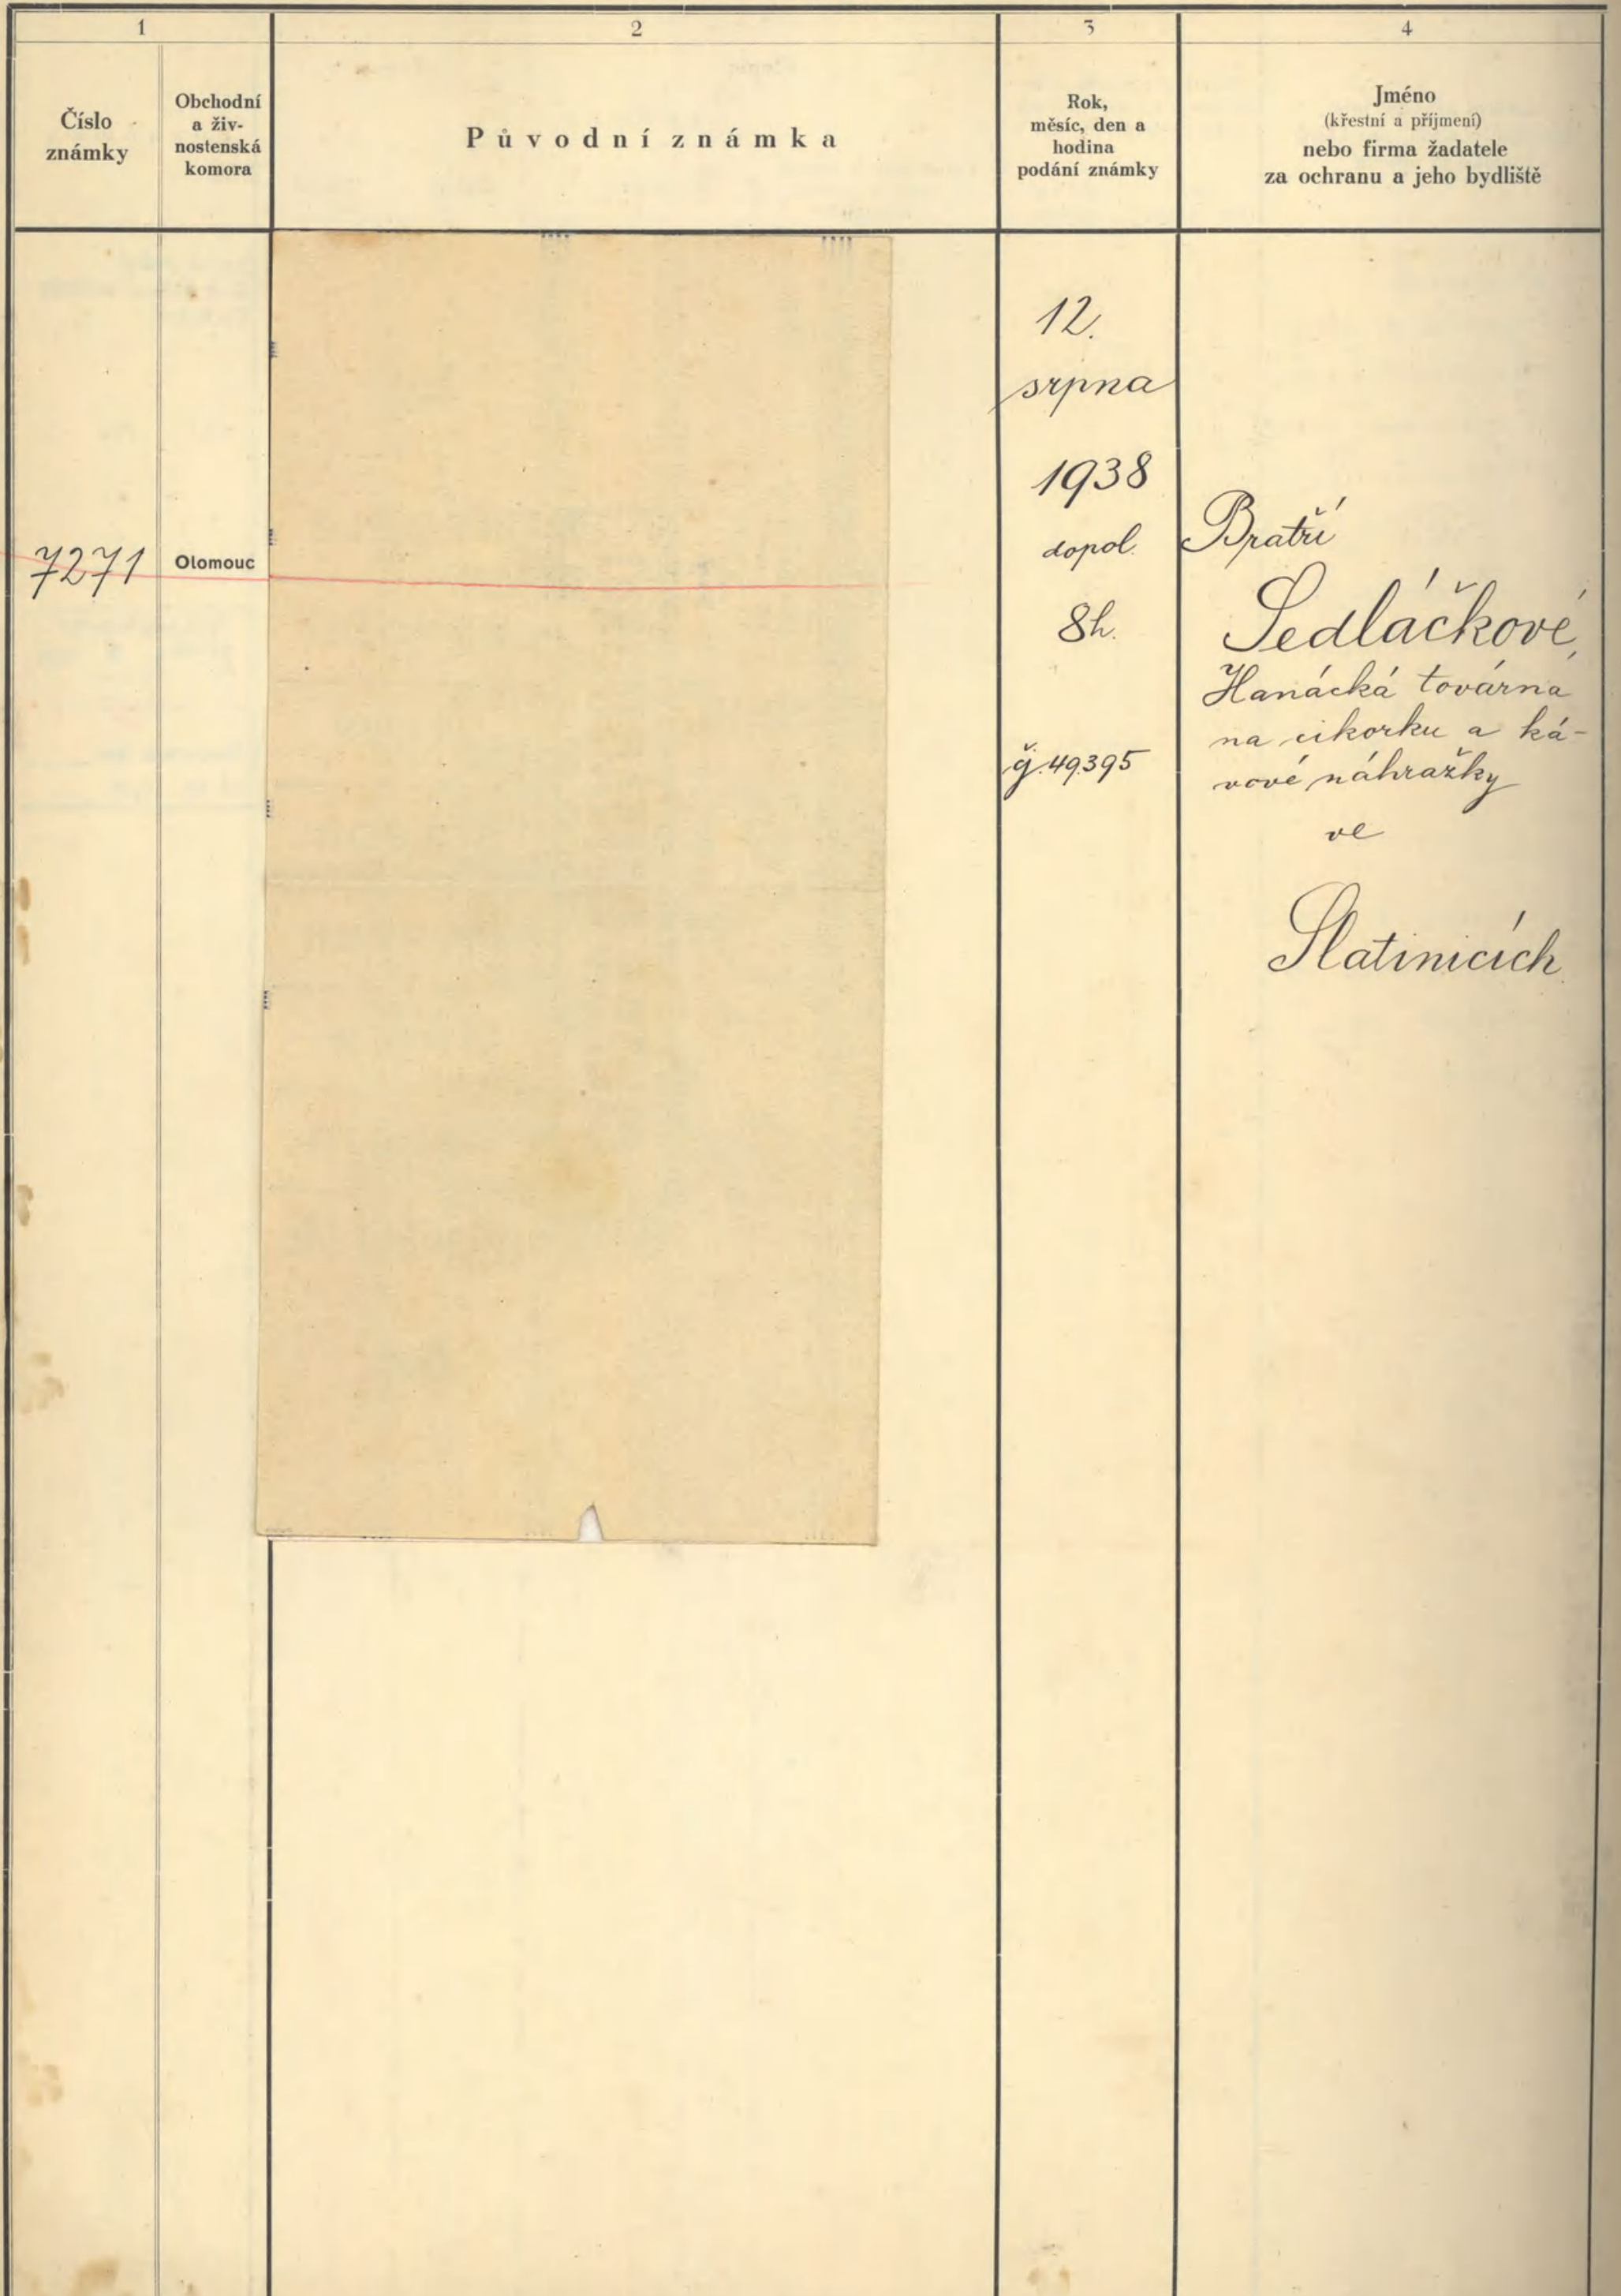 1
2
3
4
Číslo
známky
Obchodní
a živ-
nostenská
komora
Původní známka
Rok,
měsíc, den a
hodina
podání známky
Jméno
(křestní a příjmení)
nebo firma žadatele
za ochranu a jeho bydliště
7271
Olomouc
12.
srpna
1938
dopol.
8h.
čj. 49.395
Bratří
Sedláčkové,
Hanácká továrna
na cikorku a ká-
vové náhražky
ve
Slatinicích